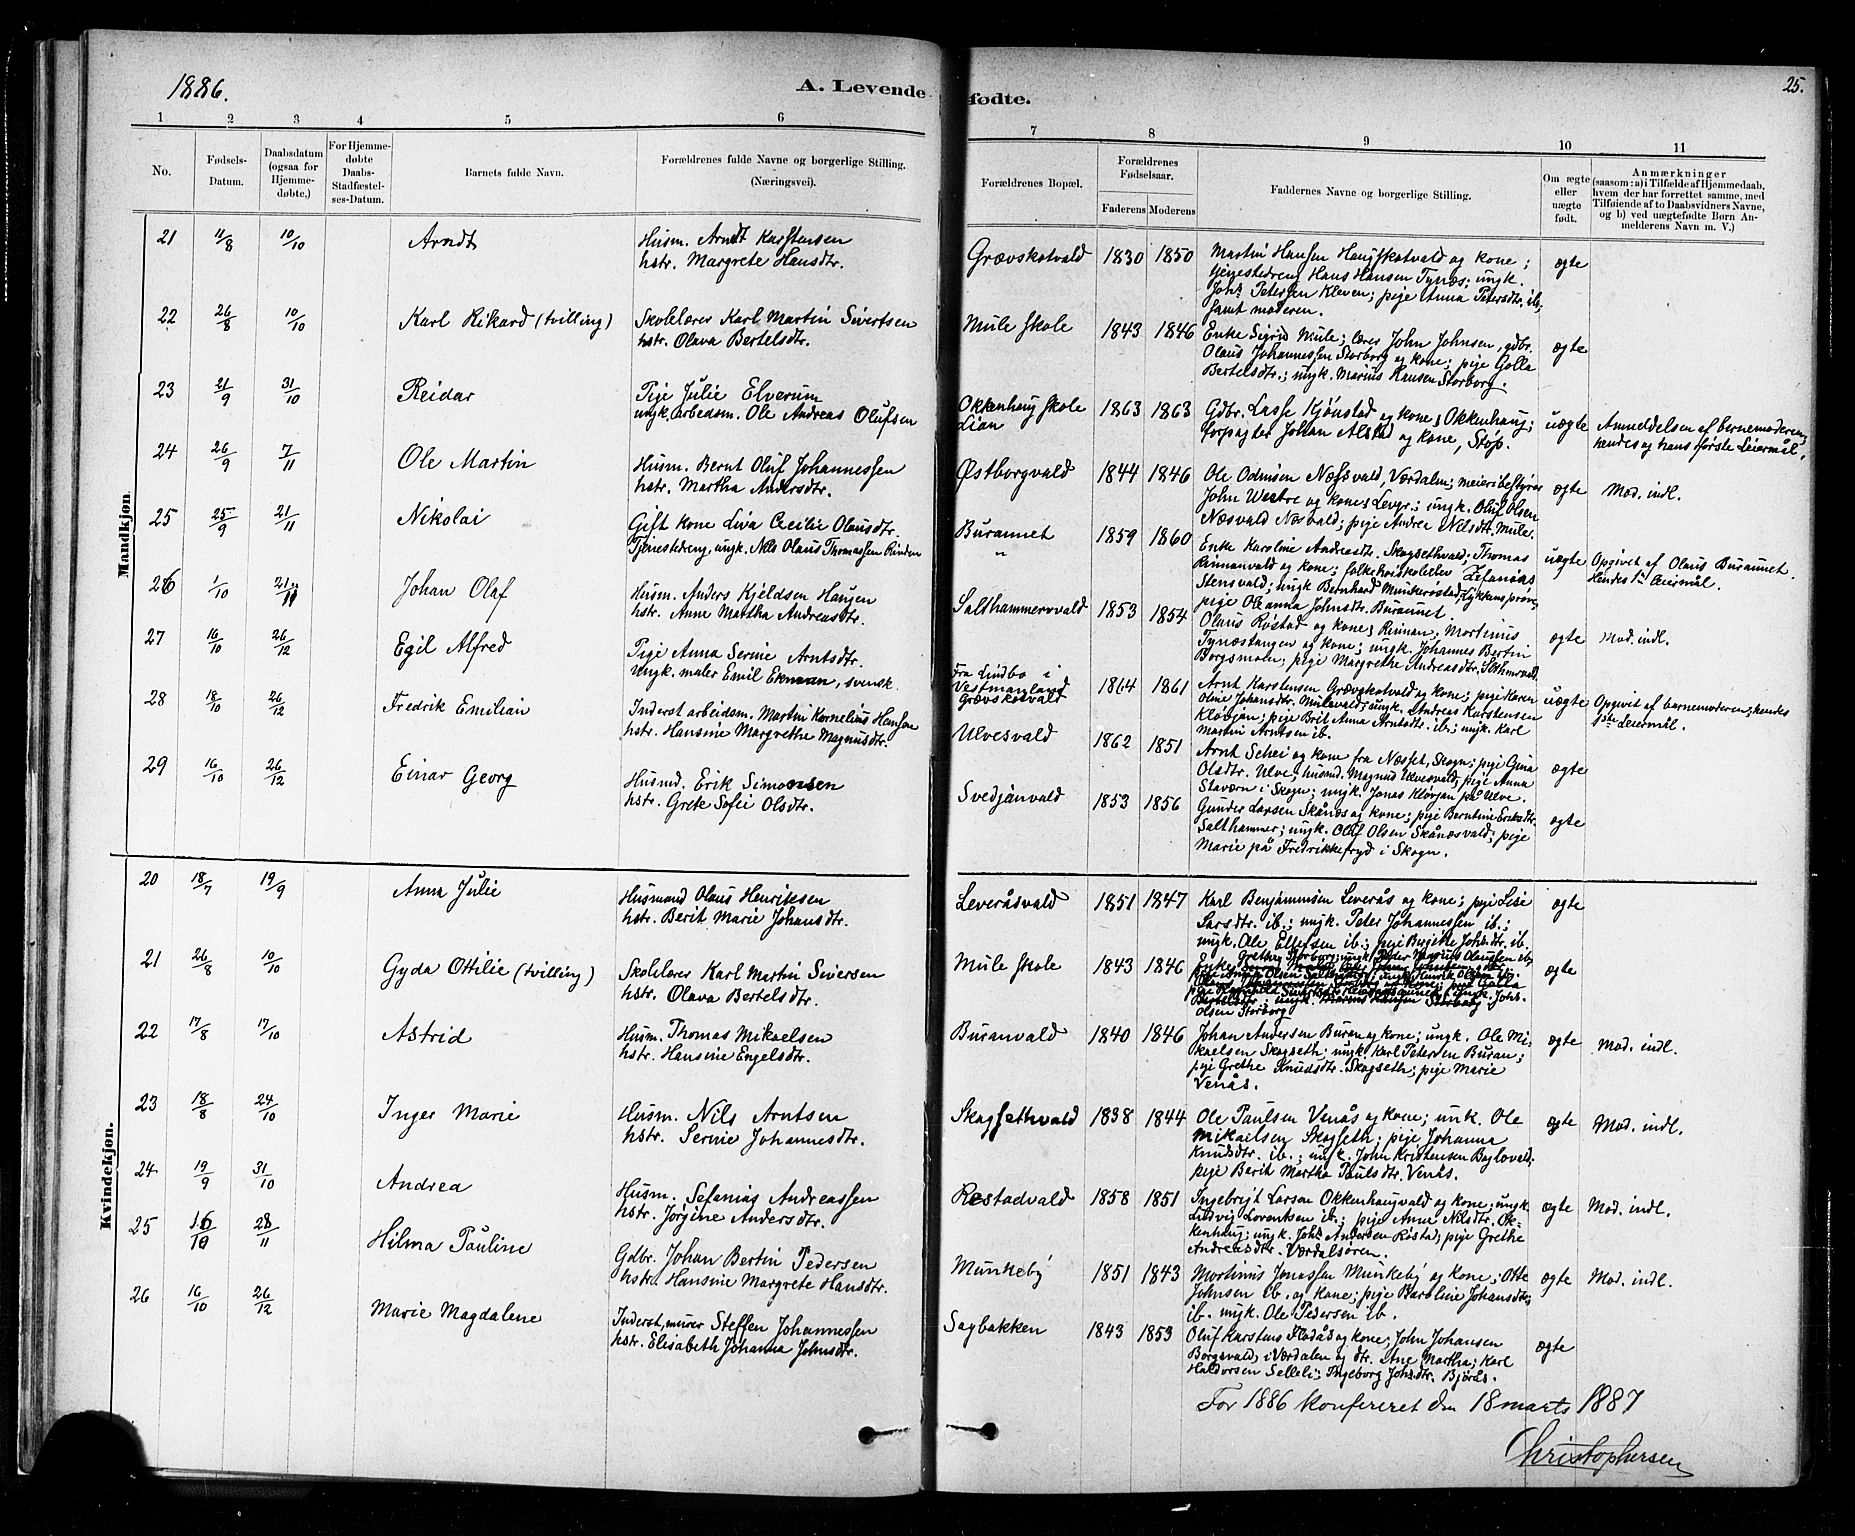 1886.
A. Levende fødte.
25.
1 2 3 4 5 6 7 8 9 10 11
No.
Fødsels-
Datum.
Daabsdatum
(ogsaa for
Hjemme-
døbte.)
For Hjemme-
døbte
Daabs-
Stadfæstel-
ses-Datum.
Barnets fulde Navn.
Forældrenes fulde Navne og borgerlige Stilling.
(Næringsvei).
Forældrenes Bopæl.
Forældrenes
Fødselsaar.
Faderens Moderens
Faddernes Navne og borgerlige Stilling.
Om ægte
eller
uægte
født.
Anmærkninger
(saasom: a) i Tilfælde af Hjemmedaab,
hvem der har forrettet samme, med
Tilføiende af to Daabsvidners Navne,
og b) ved uægtefødte Børn An-
melderens Navn m. V.)
Mandkjøn.
21 11/8 10/10 Arndt
Husm. Arndt Karstensen
hstr. Margrete Hansdtr.
Grævskotvald 1830 1850
Martin Hansen Haugskotvald og kone;
tjenestedreng Hans Hansen Tynæs; ungk.
Johs. Petersen Kleven; pige Anna Petersdtr. ib.,
samt moderen.
ægte
22 26/8 10/10 Karl Rikard (tvilling)
Skolelærer Karl Martin Sivertsen
hstr. Olava Bertelsdtr.
Mule skole 1843 1846
Enke Sigrid Mule; lærer John Johnsen, gdbr.
Olaus Johannessen Storborg og kone; pige Golla
Bertelsdtr.; ungk. Marius Hansen Storborg.
ægte
23 21/9 31/10 Reidar
Pige Julie Elverum
ungk. arbeidsm. Ole Andreas Olufsen
Okkenhaug skole
Lian
1863 1863
Gdbr. Lasse Kjønstad og kone, Okkenhaug;
forpagter Johan Alstad og kone, Stöp.
uægte
Anmeldelsen af barnemoderen;
hendes og hans første Leiermål.
24 26/9 7/11 Ole Martin
Husm. Bernt Oluf Johannessen
hstr. Martha Andersdtr.
Østborgvald 1844 1846
Ole Odinsen Næssvald, Værdalen; meieribestyrer
John Westre og kone, Levgr.; ungk. Oluf Olsen
Næsvald Norvald; pige Andrea Nilsdtr. Mule.
ægte Mod. indl.
25 25/9 21/11 Nikolai
Gift kone Liva Cecilie Olausdtr.
Tjenestedreng, ungk. Nils Olaus Thomassen Rinden
Buraunet
"
1859 1860
Enke Karoline Andreasdtr. Skogsethvald; Thomas
Rinnanvald og kone; folkehøiskoleelev Zefanias
Stensvald; ungk. Bernhard Munkerøstad, Lykkensprøve;
pige Oleanna Johnsdtr. Buraunet.
uægte
Opgivet af Olaus Buraunet.
Hendes 1ste Leiermål.
26 1/10 21/11 Johan Olaf
Husm. Anders Kjeldsen Haugen
hstr. Anne Martha Andreasdtr.
Salthammervald 1853 1854
Olaus Røstad og kone, Rinnan; Mortinus
Tynæstangen og kone; ungk. Johannes Bertin
Borgsmoen; pige Margrethe Andreasdtr.
ægte Mod. indl.
27 16/10 26/12 Egil Alfred
Pige Anna Serine Arntsdtr.
Ungk. maler Emil Ekman, svensk.
Fra Lindbo i
Vestmanland
Grævskotvald
1864 1861
Arnt Karstensen Grævskotvald og kone; pige Karen
Oline Johansdtr. Mulevald; ungk. Andreas Karstensen
Kløvjan; pige Brit Anna Arntsdtr. ib.; ungk. Karl
Martin Arntsen ib.
uægte
Opgivet af barnemoderen; hendes
1ste Leiermål.
28 18/10 26/12 Fredrik Emilian
Inderst arbeidsm. Martin Kornelius Hansen
hstr. Hansine Margrethe Magnusdtr.
Ulvesvald 1862 1851
Arnt Schei og kone fra Næsset, Skogn; pige Gina
Olsdtr. Ulve; husmd. Magnus Ulvesvald; pige Anna
Stavern i Skogn; ungk. Jonas Kløvjan på Ulve.
ægte
29 16/10 26/12 Einar Georg
Husmd. Erik Simonsen
hstr. Grete Sofie Olsdtr.
Svedjanvald 1853 1856
Gunder Larsen Skånæs og kone; pige Berntine Eriksdtr.
Salthammer; ungk. Oluf Olsen Skånæsvald; pige
Marie på Fredrikkefryd i Skogn.
ægte
Kvindekjøn.
20 18/7 19/9 Anna Julie
Husmand Olaus Henriksen
hstr. Berit Marie Johansdtr.
Leveråsvald 1851 1847
Karl Benjaminsen Leverås og kone; pige Lise
Larsdtr. ib.; ungk. Peter Johannessen ib.;
ungk. Ole Ellefsen ib.; pige Birgitte Johsdtr. ib.
ægte
21 26/8 10/10 Gyda Ottilie (tvilling)
Skolelærer Karl Martin Siversen
hstr. Olava Bertelsdtr.
Mule skole 1843 1846
Grethe Storborg; ungk. Peder Olaussen ib.;
Johs.
Olsen Storborg
ægte
22 17/8 17/10 Astrid
Husm. Thomas Mikaelsen
hstr. Hansine Engelsdtr.
Buranvald 1840 1846
Johan Andersen Buran og kone; ungk. Ole Mi-
kaelsen Skogseth; ungk. Karl Petersen Buran;
pige Grethe Knudsdtr. Skogseth; pige Marie
Venås.
ægte Mod. indl.
23 18/8 24/10 Inger Marie
Husm. Nils Arntsen
hstr. Serine Johannesdtr.
Skogsethvald 1838 1844
Ole Paulsen Venås og kone; ungk. Ole
Mikaelsen Skogseth; pige Johanna
Knudsdtr. ib.; ungk. John Kristensen Byglovald;
pige Berit Martha Paulsdtr. Venås.
ægte Mod. indl.
24 19/9 31/10 Andrea
Husm. Sefanias Andreassen
hstr. Jørgine Andersdtr.
Restadvald 1858 1851
Ingebrigt Larsen Okkenhaugvald og kone; ungk.
Ludvig Lorentsen ib.; pige Anne Nilsdtr. Ok-
kenhaug; ungk. Johs Andersen Röstad; pige Grethe
Andreasdtr. Værdalsøren.
ægte Mod. indl.
25 16/10 28/11 Hilma Pauline
Gdbr. Johan Bertin Pedersen
hstr. Hansine Margrete Hansdtr.
Munkeby 1851 1843
Mortinus Jonassen Munkeby og kone; Otte
Johnsen ib. og kone; pige Karoline Johansdtr.
ib. ungk. Ole Pedersen ib.
ægte Mod. indl.
26 16/10 26/12 Marie Magdalene
Inderst, murer Steffen Johannessen
hstr. Elisabeth Johanna Johnsdtr.
Sagbakken 1843 1853
Oluf Karstens. Flodås og kone; John Johansen
Borgsvald, i Værdalen og dtr. Ane Martha; Karl
Haldorsen Selleli; Ingeborg Johsdtr. Bjørås.
ægte
For 1886 konfereret den 18 marts 1887
Christophersen